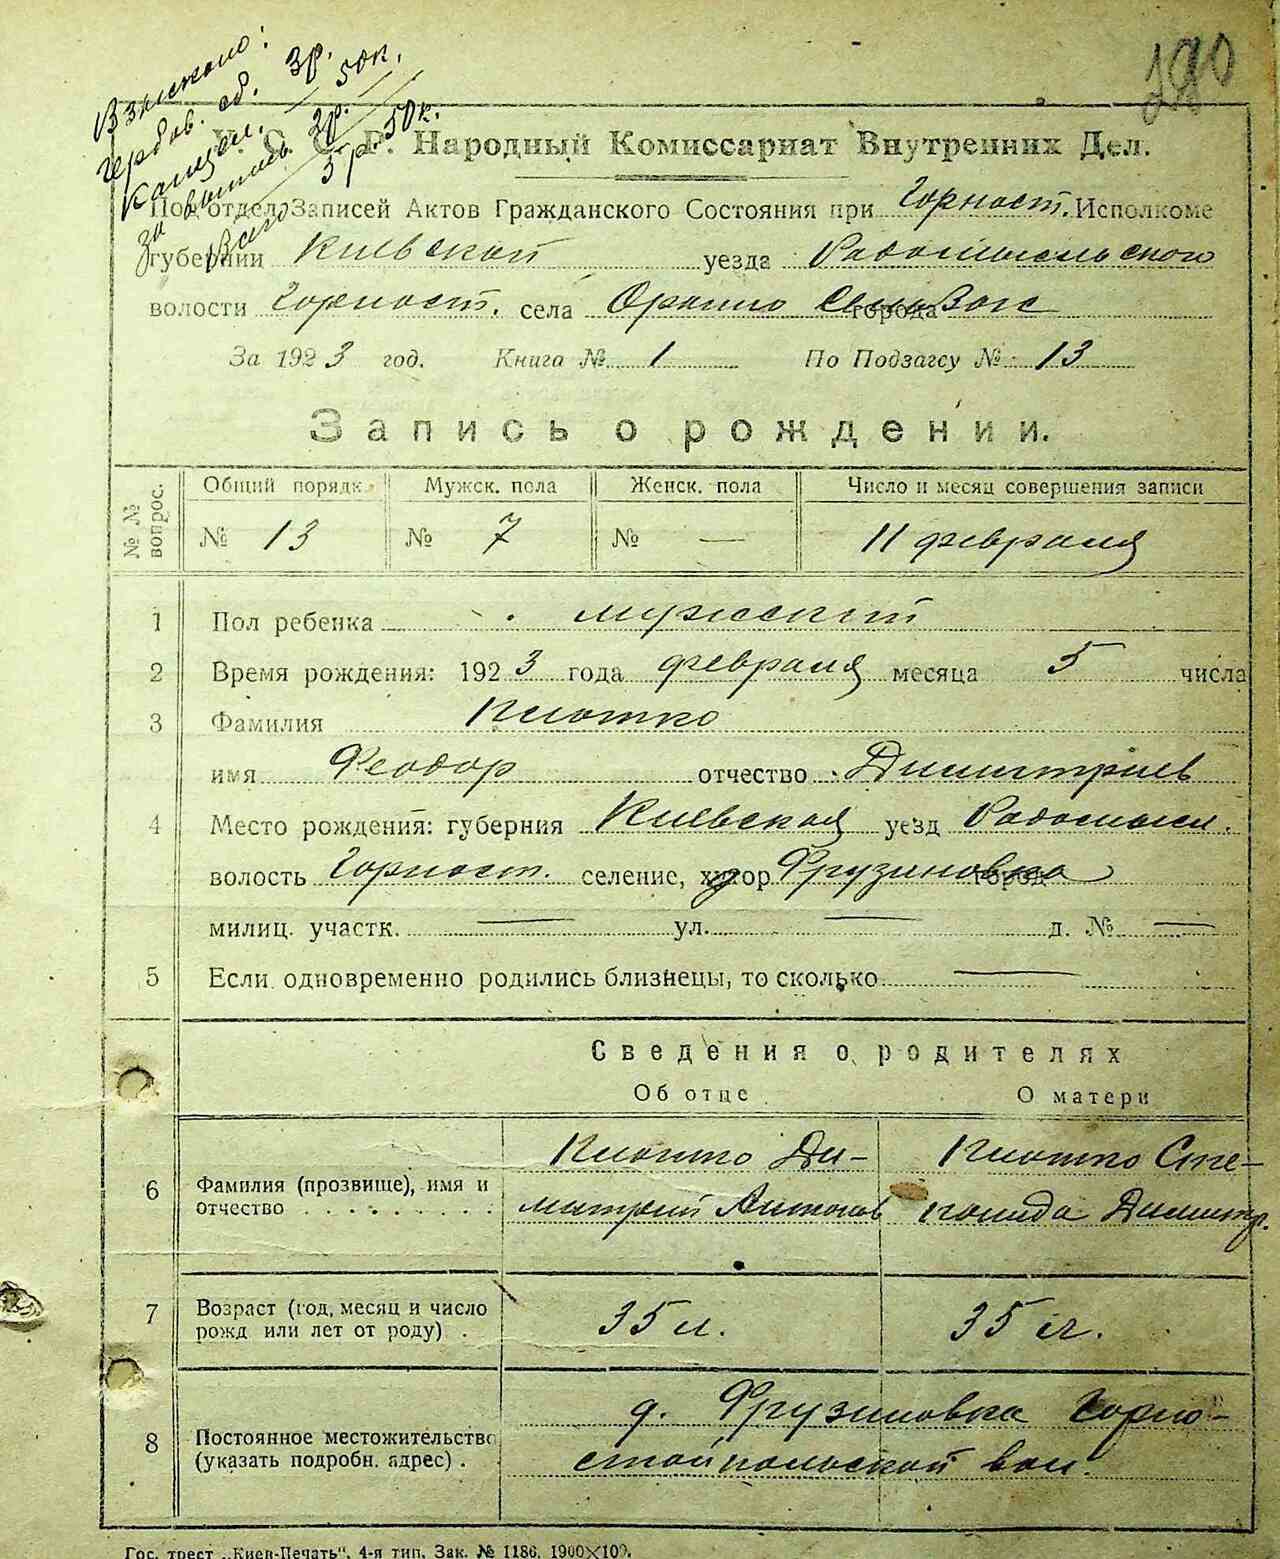 180
Взыскано:
Гербов. сб. 3р.
Канцел. — 50к.
за выпись 2р.
Всего 5р 50к.
У. С. С. Р. Народный Комиссариат Внутренних Дел.
Под'отдел Записей Актов Гражданского Состояния при Горност. Исполкоме
губернии Киевской уезда Радомысльского
волости Горност. села города
За 1923 год. Книга № 1 По Подзагсу № 13
Запись о рождении.
№ № вопрос.
Общий порядк. Мужск. пола Женск. пола Число и месяц совершения записи
№ 13 № 7 № — 11 февраля
1 Пол ребенка мужский
2 Время рождения: 1923 года февраля месяца 5 числа
3 Фамилия Клотко
имя Феодор отчество Димитриев
4 Место рождения: губерния Киевская уезд Радомысл.
волость Горност. селение, хутор Фрузиновка город
милиц. участк. — ул. — д. № —
5 Если одновременно родились близнецы, то сколько —
Сведения о родителях
Об отце О матери
6 Фамилия (прозвище), имя и отчество . . . . . . . . .
Клотко Ди-
митрий Антонов
Клотко Сте-
панида Димитр.
7 Возраст (год, месяц и число рожд или лет от роду) .
35 л. 35 л.
8 Постоянное местожительство (указать подробн. адрес) .
д. Фрузиновка Горно-
стайпольской вол.
Гос. трест „Киев-Печать“, 4-я тип. Зак. № 1186. 1900×100.